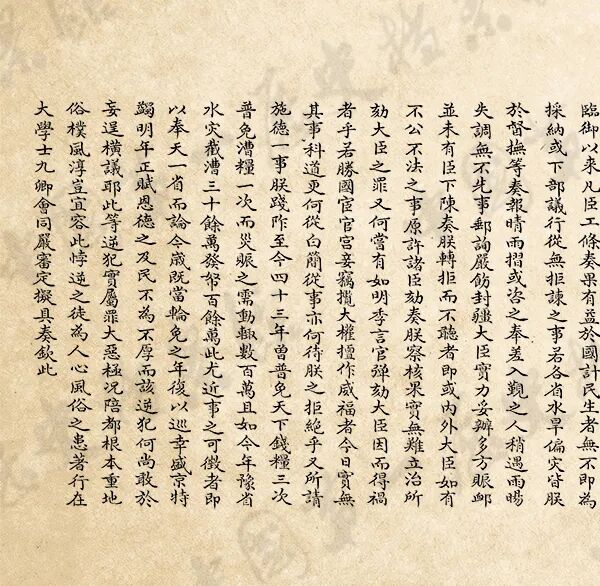 臨御以來凡臣工條奏果有益於國計民生者無不即為
採納或下部議行從無拒諫之事若各省水旱偏灾皆朕
於督撫等奏報晴雨摺或咨之奉差入覲之人稍遇雨暘
失調無不先事郵諭嚴飭封疆大臣實力妥辦多方賑卹
並未有臣下陳奏朕轉拒而不聽者即或內外大臣如有
不公不法之事原許諸臣劾奏朕察核果實無難立治所
劾大臣之罪又何嘗有如明季言官彈劾大臣因而得禍
者乎若勝國宦官宮妾竊攬大權擅作威福者今日實無
其事科道更何從白簡從事亦何待朕之拒絕乎又所請
施德一事朕踐阼至今四十三年曾普免天下錢糧三次
普免漕糧一次而災賑之需動輒數百萬且如今年豫省
水灾截漕三十餘萬發帑百餘萬此尤近事之可徵者即
以奉天一省而論今歲既當輪免之年復以巡幸盛京特
蠲明年正賦恩德之及民不為不厚而該逆犯何尚敢於
妄逞橫議耶此等逆犯實屬罪大惡極况陪都根本重地
俗樸風淳豈宜容此悖逆之徒為人心風俗之患著行在
大學士九卿會同嚴審定擬具奏欽此